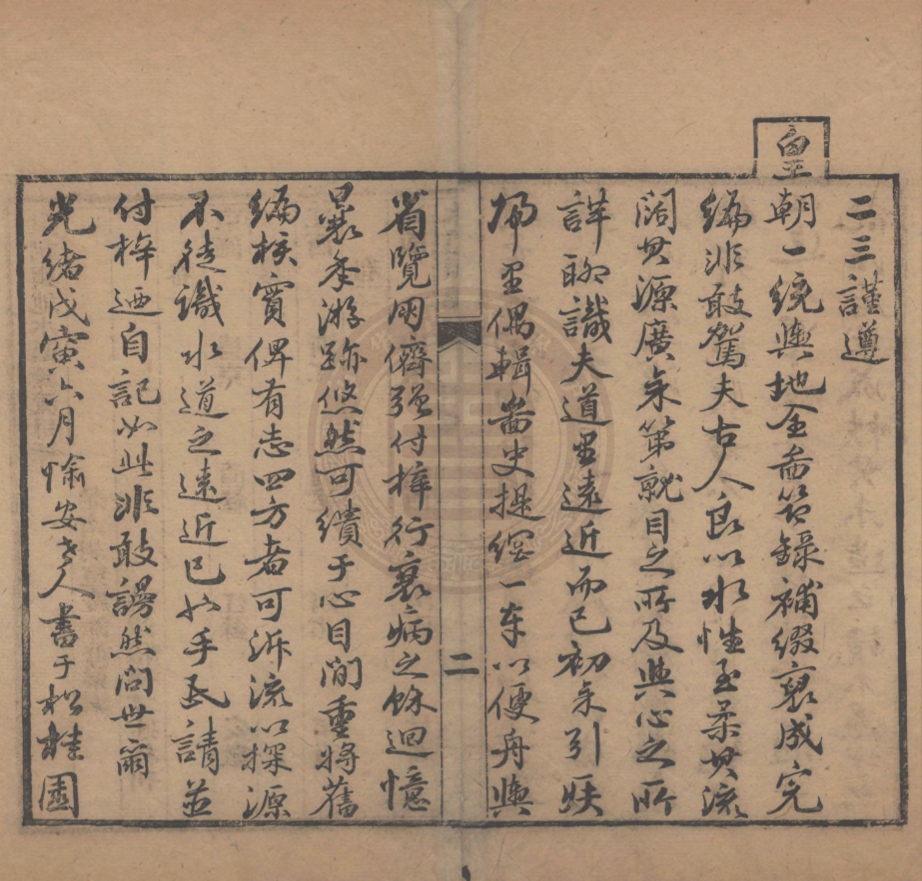 二三謹遵
皇朝一統輿地全啚節錄補綴裒成完
編非敢駕夫古人良以水性至柔其流
闊其源廣矣第就目之所及與心之所
詳聊識夫道里遠近而已初未引
歸里偶輯啚史提綱一本以便舟輿
二
省覽同儕強付梓行衰病之餘迴憶
曩年游跡悠然可繢于心目間重將舊
編核實俾有志四方者可泝流以探源
不徒識水道之遠近已也手民請並
付梓迺自記如此非敢謾然問世爾
光緒戊寅六月愉安老人書于松桂園